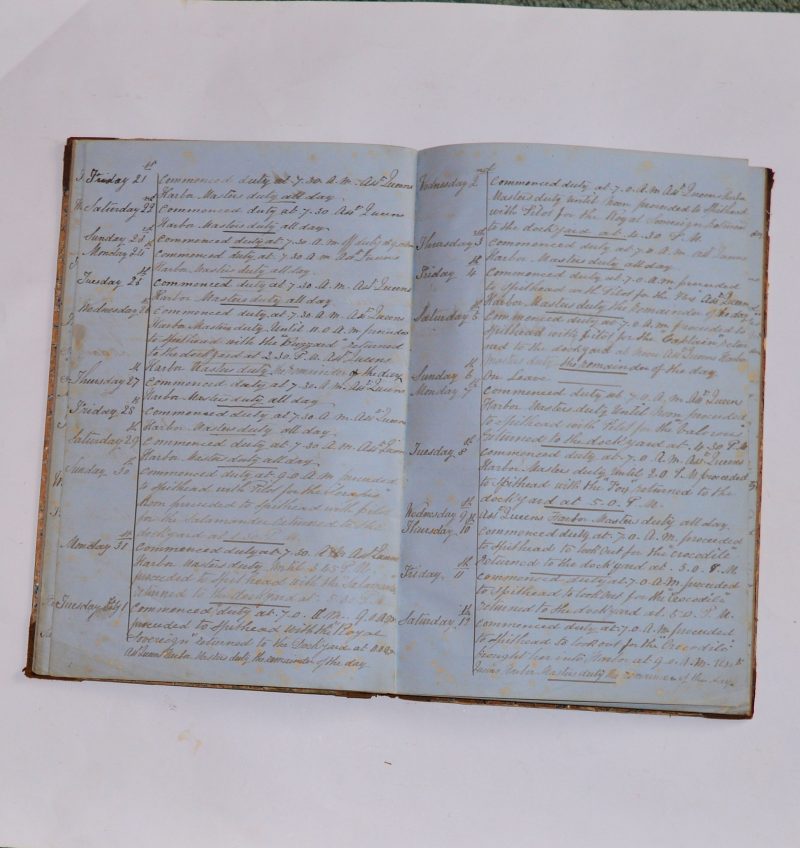 Friday 21st Commenced duty at 7.30 A.M. Asst Queens
Harbor Masters duty all day.
Saturday 22nd Commenced duty at 7.30 Asst Queens
Harbor Masters duty all day.
Sunday 23 Commenced duty at 7.30 A.M off duty
Monday 24th Commenced duty at 7.30 A M Asst Queens
Harbor Masters duty all day.
Tuesday 25th Commenced duty at 7.30 A.M. Asst Queens
Harbor Masters duty all day
Wednesday 26th Commenced duty at 7.30 A.M. Asst Queens
Harbor Masters duty Until 11.0 A M proceeded
to Spithead with the returned
to the dockyard at 2.30 P.M. Asst Queens
Harbor Masters duty the remainder of the day
Thursday 27th Commenced duty at 7.30 A M Asst Queens
Harbor Masters duty all day
Friday 28th Commenced duty at 7.30 A.M. Asst Queens
Harbor Masters duty all day.
Saturday 29th Commenced duty at 7.30 A.M. Asst Queens
Harbor Masters duty all day.
Sunday 30th Commenced duty at 9.0 A M proceeded
to Spithead with Pilot for the Serapis
Noon proceeded to Spithead with pilot
for the Salamander returned to the
dockyard at
Monday 31st Commenced duty at 7.30 A M Asst Queens
Harbor Masters duty Until 3.45 P.M.
proceeded to Spithead with the Salamander
returned to the dockyard at 5.30 P.M.
Tuesday Feby 1 Commenced duty at 7.0 A M. 9.0 A M
proceeded to Spithead with the "Royal
Sovereign" returned to the Dockyard at 11.0 A M
Asst Queens Harbor Masters duty the remainder of the day
Wednesday 2nd Commenced duty at 7.0 A.M Asst Queens Harbor
Masters duty Until Noon proceeded to Spithead
with Pilot for the Royal Sovereign returned
to the dockyard at 4.30 P.M.
Thursday 3rd Commenced duty at 7.0 A.M Asst Queens
Harbor Masters duty all day
Friday 4th Commenced duty at 7.0 A.M proceeded
to Spithead with Pilot for the Asst Queens
Harbor Masters duty the Remainder of the day
Saturday 5th Commenced duty at 7.0 A.M proceeded to
Spithead with Pilot for the Captain return
ed to the dockyard at Noon Asst Queens Harbor
Masters duty the remainder of the day
Sunday 6th On Leave
Monday 7th Commenced duty at 7.0 A.M. Asst Queens
Harbor Masters duty Until Noon proceeded
to Spithead with Pilot for the
returned to the dockyard at 4.30 P.M.
Tuesday 8th Commenced duty at 7.0 A.M. Asst Queens
Harbor Masters duty Until 2.0 P.M proceeded
to Spithead with the "Fox" returned to the
dockyard at 5.0 P.M.
Wednesday 9th Asst Queens Harbor Masters duty all day
Thursday 10th Commenced duty at 7.0 A.M. proceeded
to Spithead to look out for the Crocodile
returned to the dockyard at 5.0 P.M.
Friday 11th Commenced duty at 7.0 A.M proceeded
to Spithead to look out for the "Crocodile"
returned to the dockyard at 5.0 P.M.
Saturday 12th Commenced duty at 7.0 A.M proceeded
to Spithead to look out for the Crocodile
brought her into Harbor at 9.0 A.M. Asst
Queens Harbor Masters duty the remainder of the day.